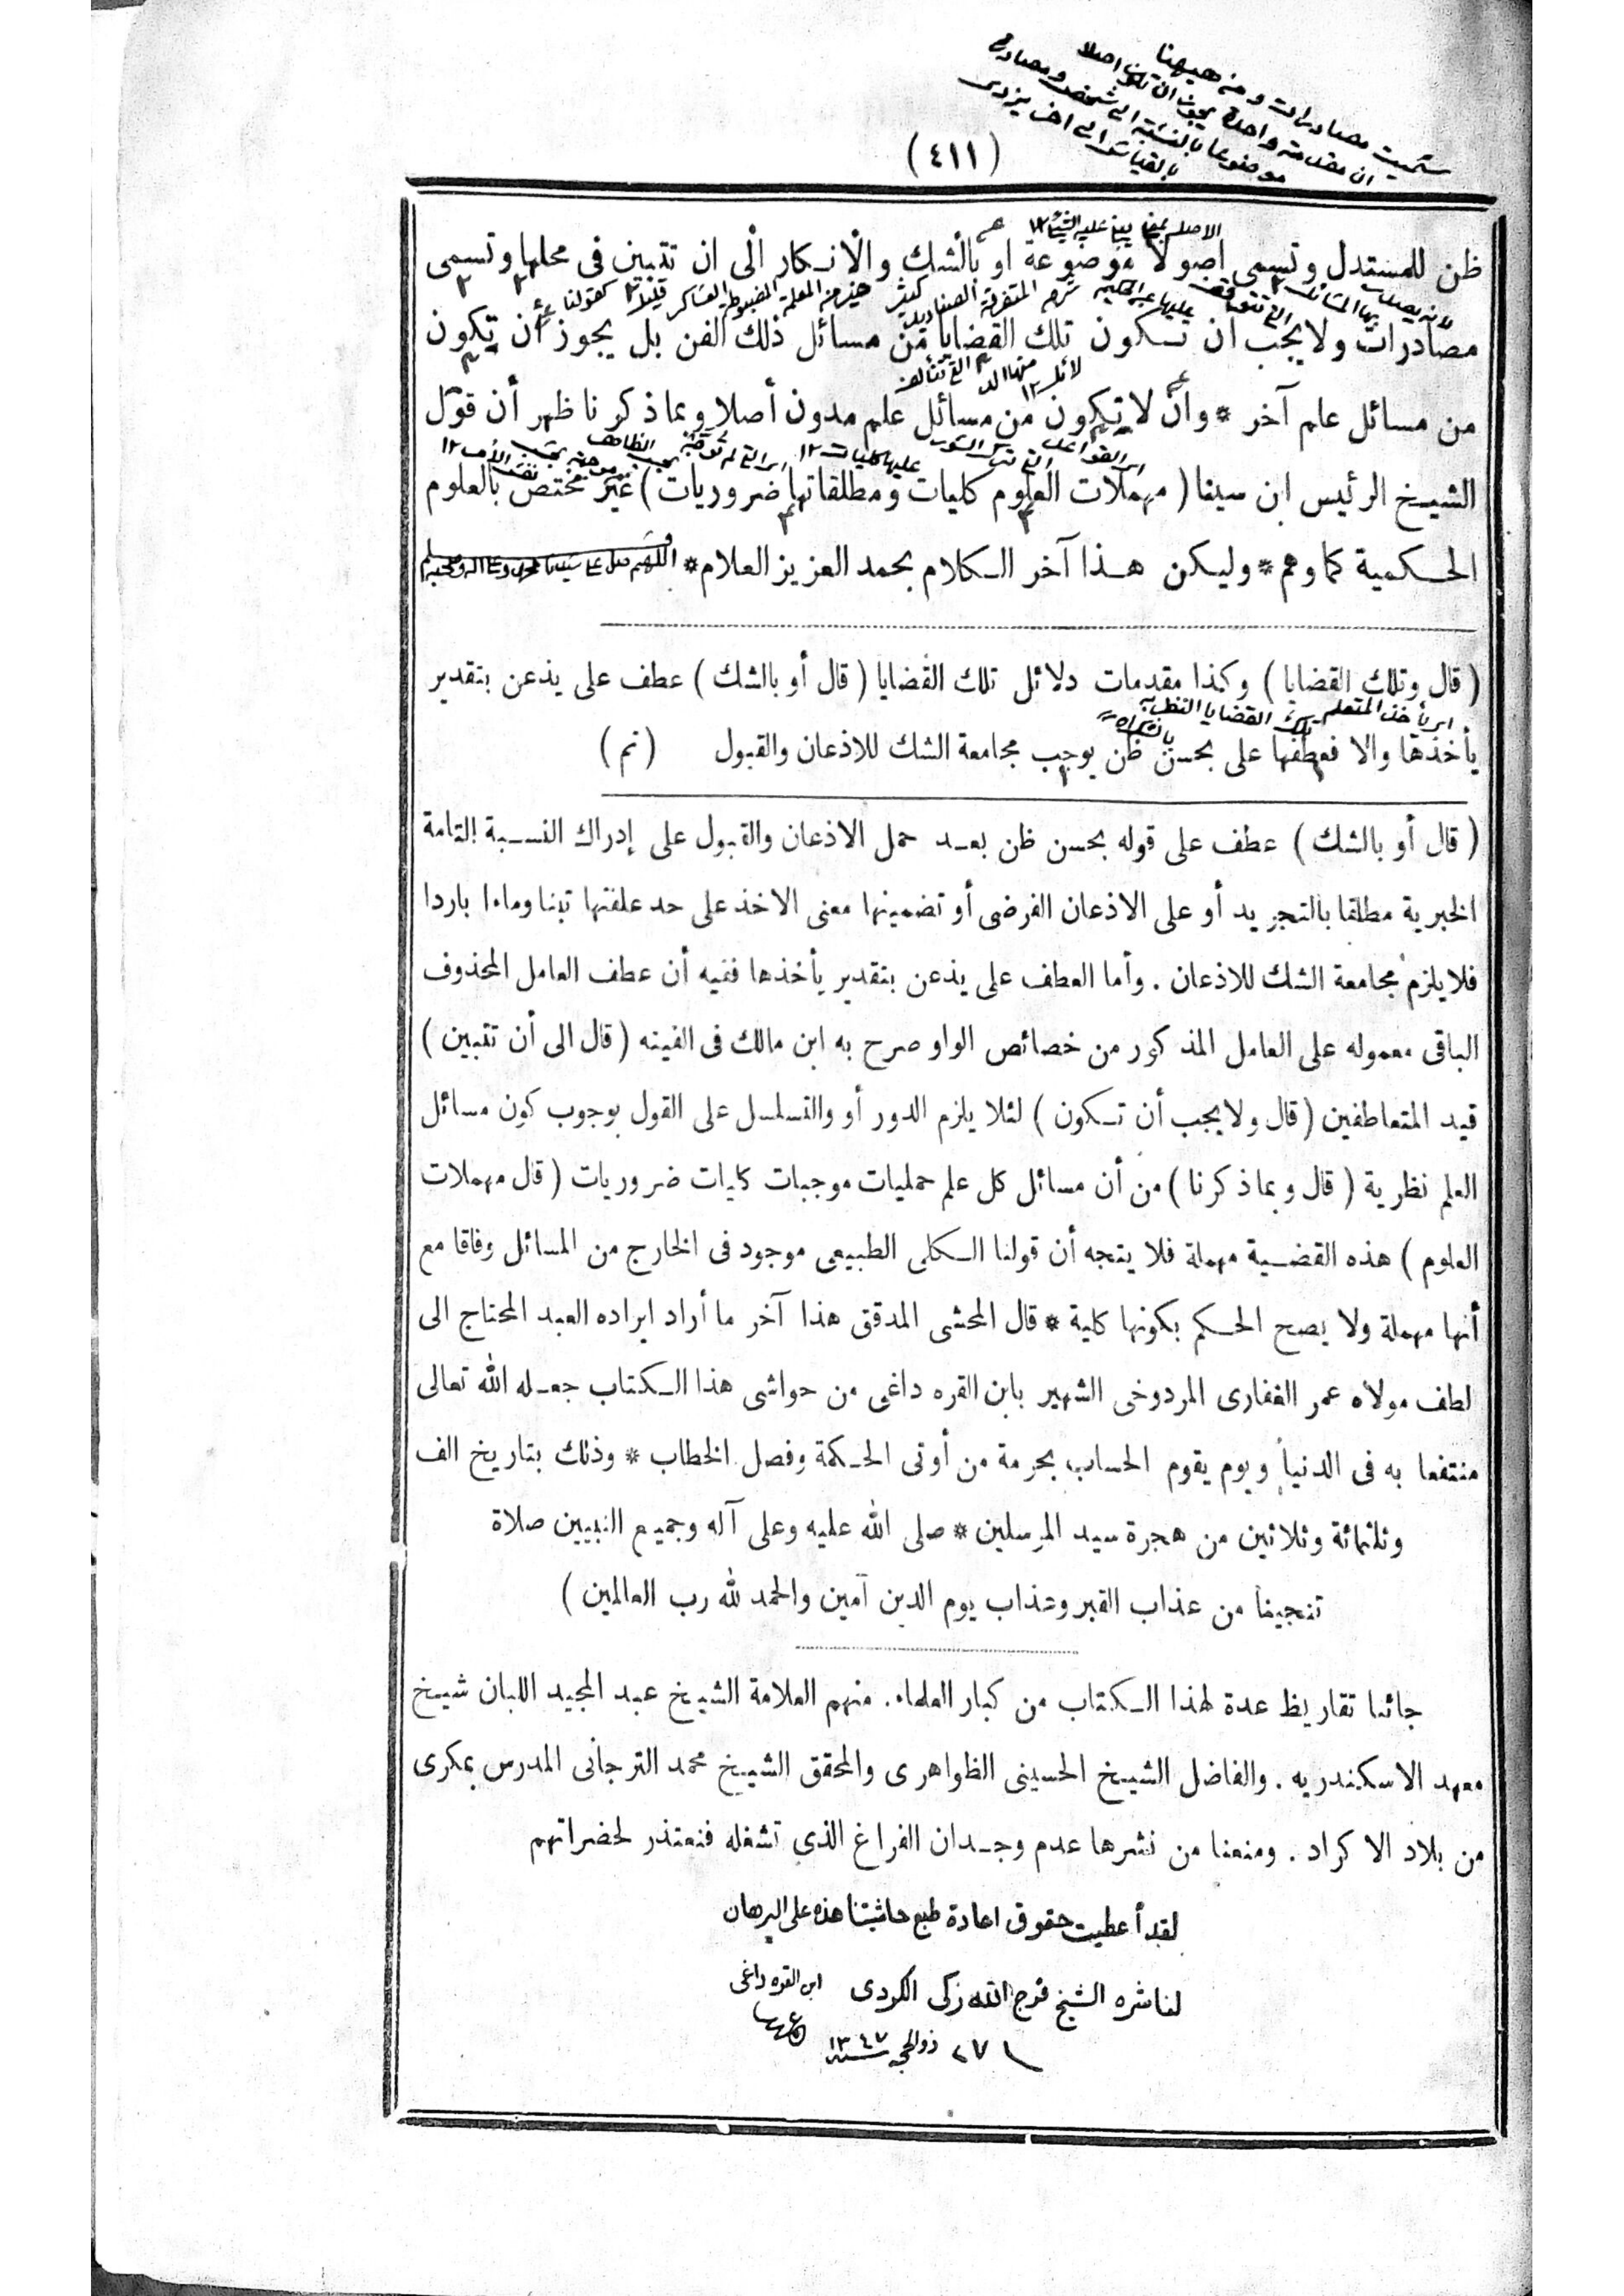 سميت مصادرات ومن ههنا
ان مقدمة واحدة يجوز ان تكون اصلا
موضوعا بالنسبة الى شخص ومصادرة
بالقياس الى اخر
(٤١١)
ظن للمستدل وتسمى اصولا موضوعة او بالشك والانكار الى ان تتبين فى محلها وتسمى
مصادرات ولا يجب ان تكون تلك القضايا من مسائل ذلك الفن بل يجوز أن تكون
من مسائل علم آخر * وأن لا تكون من مسائل علم مدون أصلا وبما ذكرنا ظهر أن قول
الشيخ الرئيس ابن سينا ( مهملات العلوم كليات ومطلقاتها ضروريات ) غير مختص بالعلوم
الحكمية كما وهم * وليكن هذا آخر الكلام بحمد العزيز العلام *
( قال وتلك القضايا ) وكذا مقدمات دلائل تلك القضايا ( قال أو بالشك ) عطف على يذعن بتقدير
يأخذها والا فعطفها على بحسن ظن يوجب مجامعة الشك للاذعان والقبول ( تم )
( قال أو بالشك ) عطف على قوله بحسن ظن بعد حمل الاذعان والقبول على إدراك النسبة التامة
الخبرية مطلقا بالتجريد أو على الاذعان الفرضى أو تضمينها معنى الاخذ على حد علفتها تبنا وماءا باردا
فلا يلزم مجامعة الشك للاذعان . وأما العطف على يذعن بتقدير يأخذها ففيه أن عطف العامل المحذوف
الباقى معموله على العامل المذكور من خصائص الواو صرح به ابن مالك فى الفيته ( قال الى أن تتبين )
قيد المتعاطفين ( قال ولا يجب أن تكون ) لئلا يلزم الدور أو والتسلسل على القول بوجوب كون مسائل
العلم نظرية ( قال وبما ذكرنا ) من أن مسائل كل علم حمليات موجبات كليات ضروريات ( قال مهملات
العلوم ) هذه القضية مهملة فلا يتجه أن قولنا الكلى الطبيعى موجود فى الخارج من المسائل وفاقا مع
أنها مهملة ولا يصح الحكم بكونها كلية * قال المحشى المدقق هذا آخر ما أراد ايراده العبد المحتاج الى
لطف مولاه عمر الغفارى المردوخى الشهير بابن القره داغى من حواشى هذا الكتاب جعله الله تعالى
منتفعا به فى الدنيا ويوم يقوم الحساب بحرمة من أوتى الحكمة وفصل الخطاب * وذلك بتاريخ الف
وثلثمائة وثلاثين من هجرة سيد المرسلين * صلى الله عليه وعلى آله وجميع النبيين صلاة
تنجينا من عذاب القبر وعذاب يوم الدين آمين والحمد لله رب العالمين )
جائنا تقاريظ عدة لهذا الكتاب من كبار العلماء . منهم العلامة الشيخ عبد المجيد اللبان شيخ
معهد الاسكندريه . والفاضل الشيخ الحسينى الظواهرى والمحقق الشيخ محمد الترجانى المدرس بمكرى
من بلاد الاكراد . ومنعنا من نشرها عدم وجدان الفراغ الذى تشغله فنعتذر لحضراتهم
لقد أعطيت حقوق اعادة طبع حاشيتنا هذه على البرهان
لناشره الشيخ فرج الله زكى الكردى ابن القره داغى
٢٧ ذوالحجه سنه ١٣٤٧